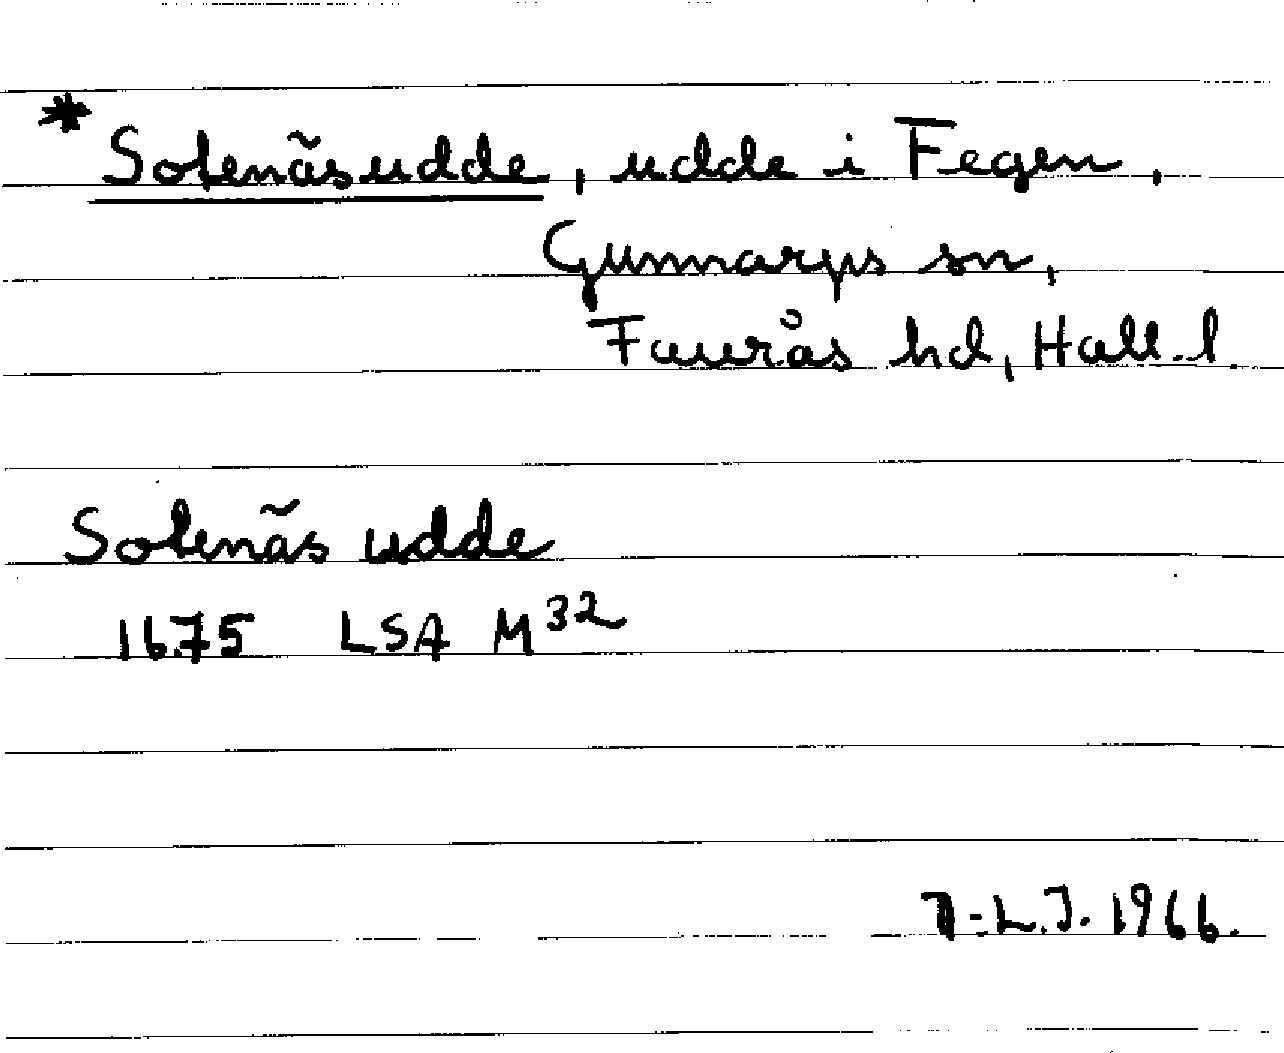 * Solenäsudde, udde i Fegen,
Gunnarps sn,
Faurås hd, Hall. l.
Solenäs udde
1675 LSA M32
L.J. 1966.